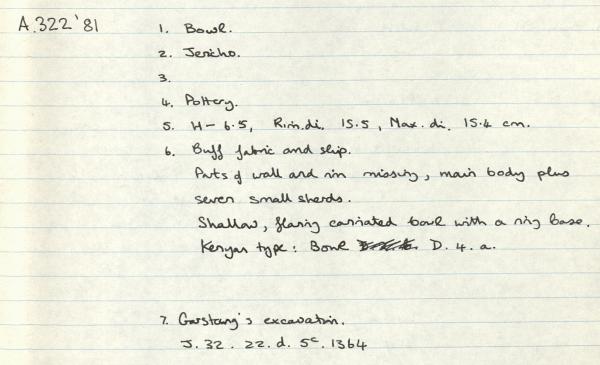 A.322'81
1. Bowl.
2. Jericho.
3.
4. Pottery.
5. H- 6.5, Rim.di. 15.5, Max. di. 15.4 cm.
6. Buff fabric and slip.
Parts of wall and rim missing, main body plus
seven small sherds.
Shallow, flaring carinated bowl with a ring base.
Kenyan type: Bowl D. 4. a.
7. Garstang's excavation.
J. 32. 22. d. 5c. 1364